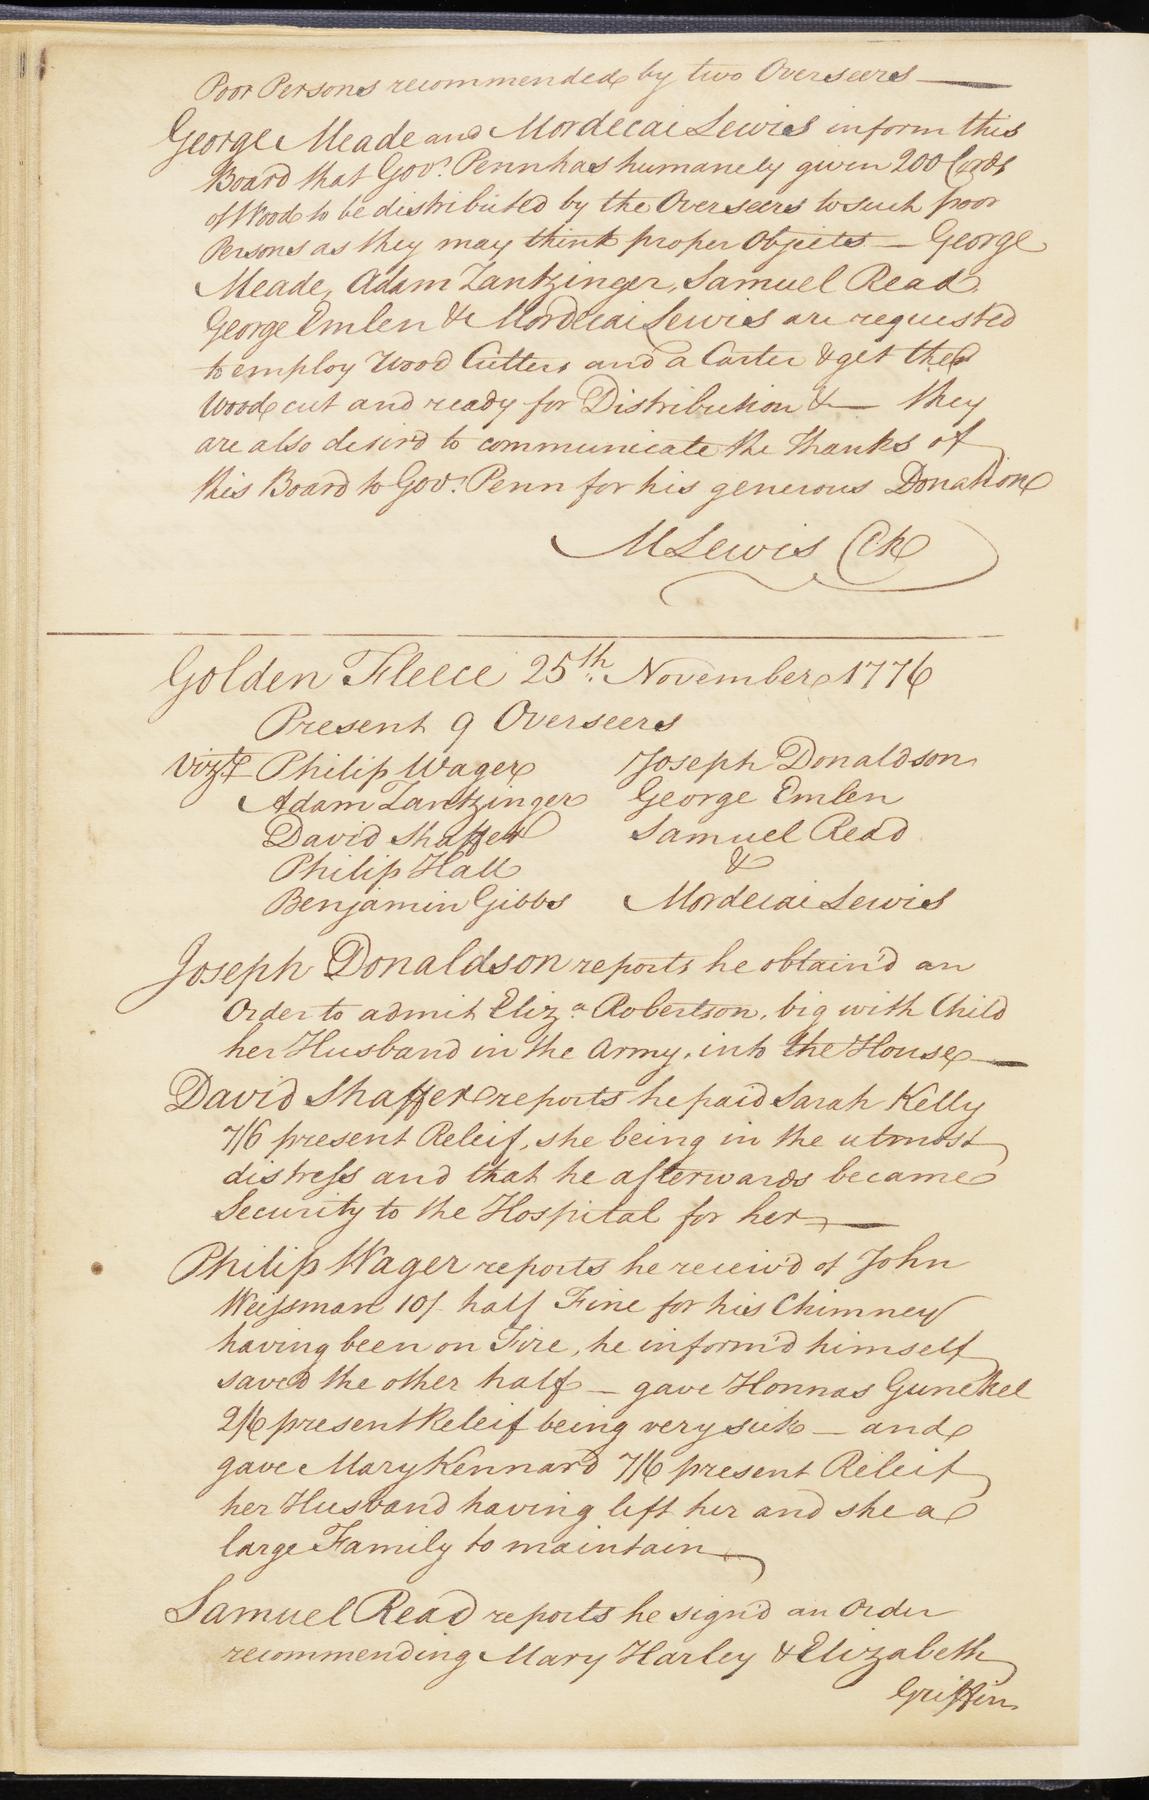 Poor Persons recommended by two Overseers —
George Meade and Mordecai Lewis inform this
Board that Govr. Penn has humanely given 200 Cords
of Wood to be distributed by the Overseers to such poor
Persons as they may think proper Objects — George
Meade, Adam Zantzinger, Samuel Read,
George Emlen & Mordecai Lewis are requested
to employ Wood Cutters and a Carter & get the
Wood cut and ready for Distribution & — they
are also desir'd to communicate the thanks of
this Board to Govr. Penn for his generous Donation
M Lewis Ck
Golden Fleece 25th. November 1776
Present 9 Overseers
Vizt Philip Wager Joseph Donaldson
Adam Zantzinger George Emlen
David Shaffer Samuel Read
Philip Hall &
Benjamin Gibbs Mordecai Lewis
Joseph Donaldson reports he obtain'd an
Order to admit Eliza. Robertson, big with Child
her Husband in the Army, into the House —
David Shaffer reports he paid Sarah Kelly
7/6 present Releif, she being in the utmost
distress and that he afterwards became
Security to the Hospital for her —
Philip Wager reports he receiv'd of John
Weissman 10/ half Fine for his Chimney
having been on Fire, he inform'd himself
saved the other half — gave Honnas Gunckel
2/6 present Releif being very sick — and
gave Mary Kennard 7/6 present Releif
her Husband having left her and she a
large Family to maintain
Samuel Read reports he sign'd an Order
recommending Mary Harley & Elizabeth
Griffin